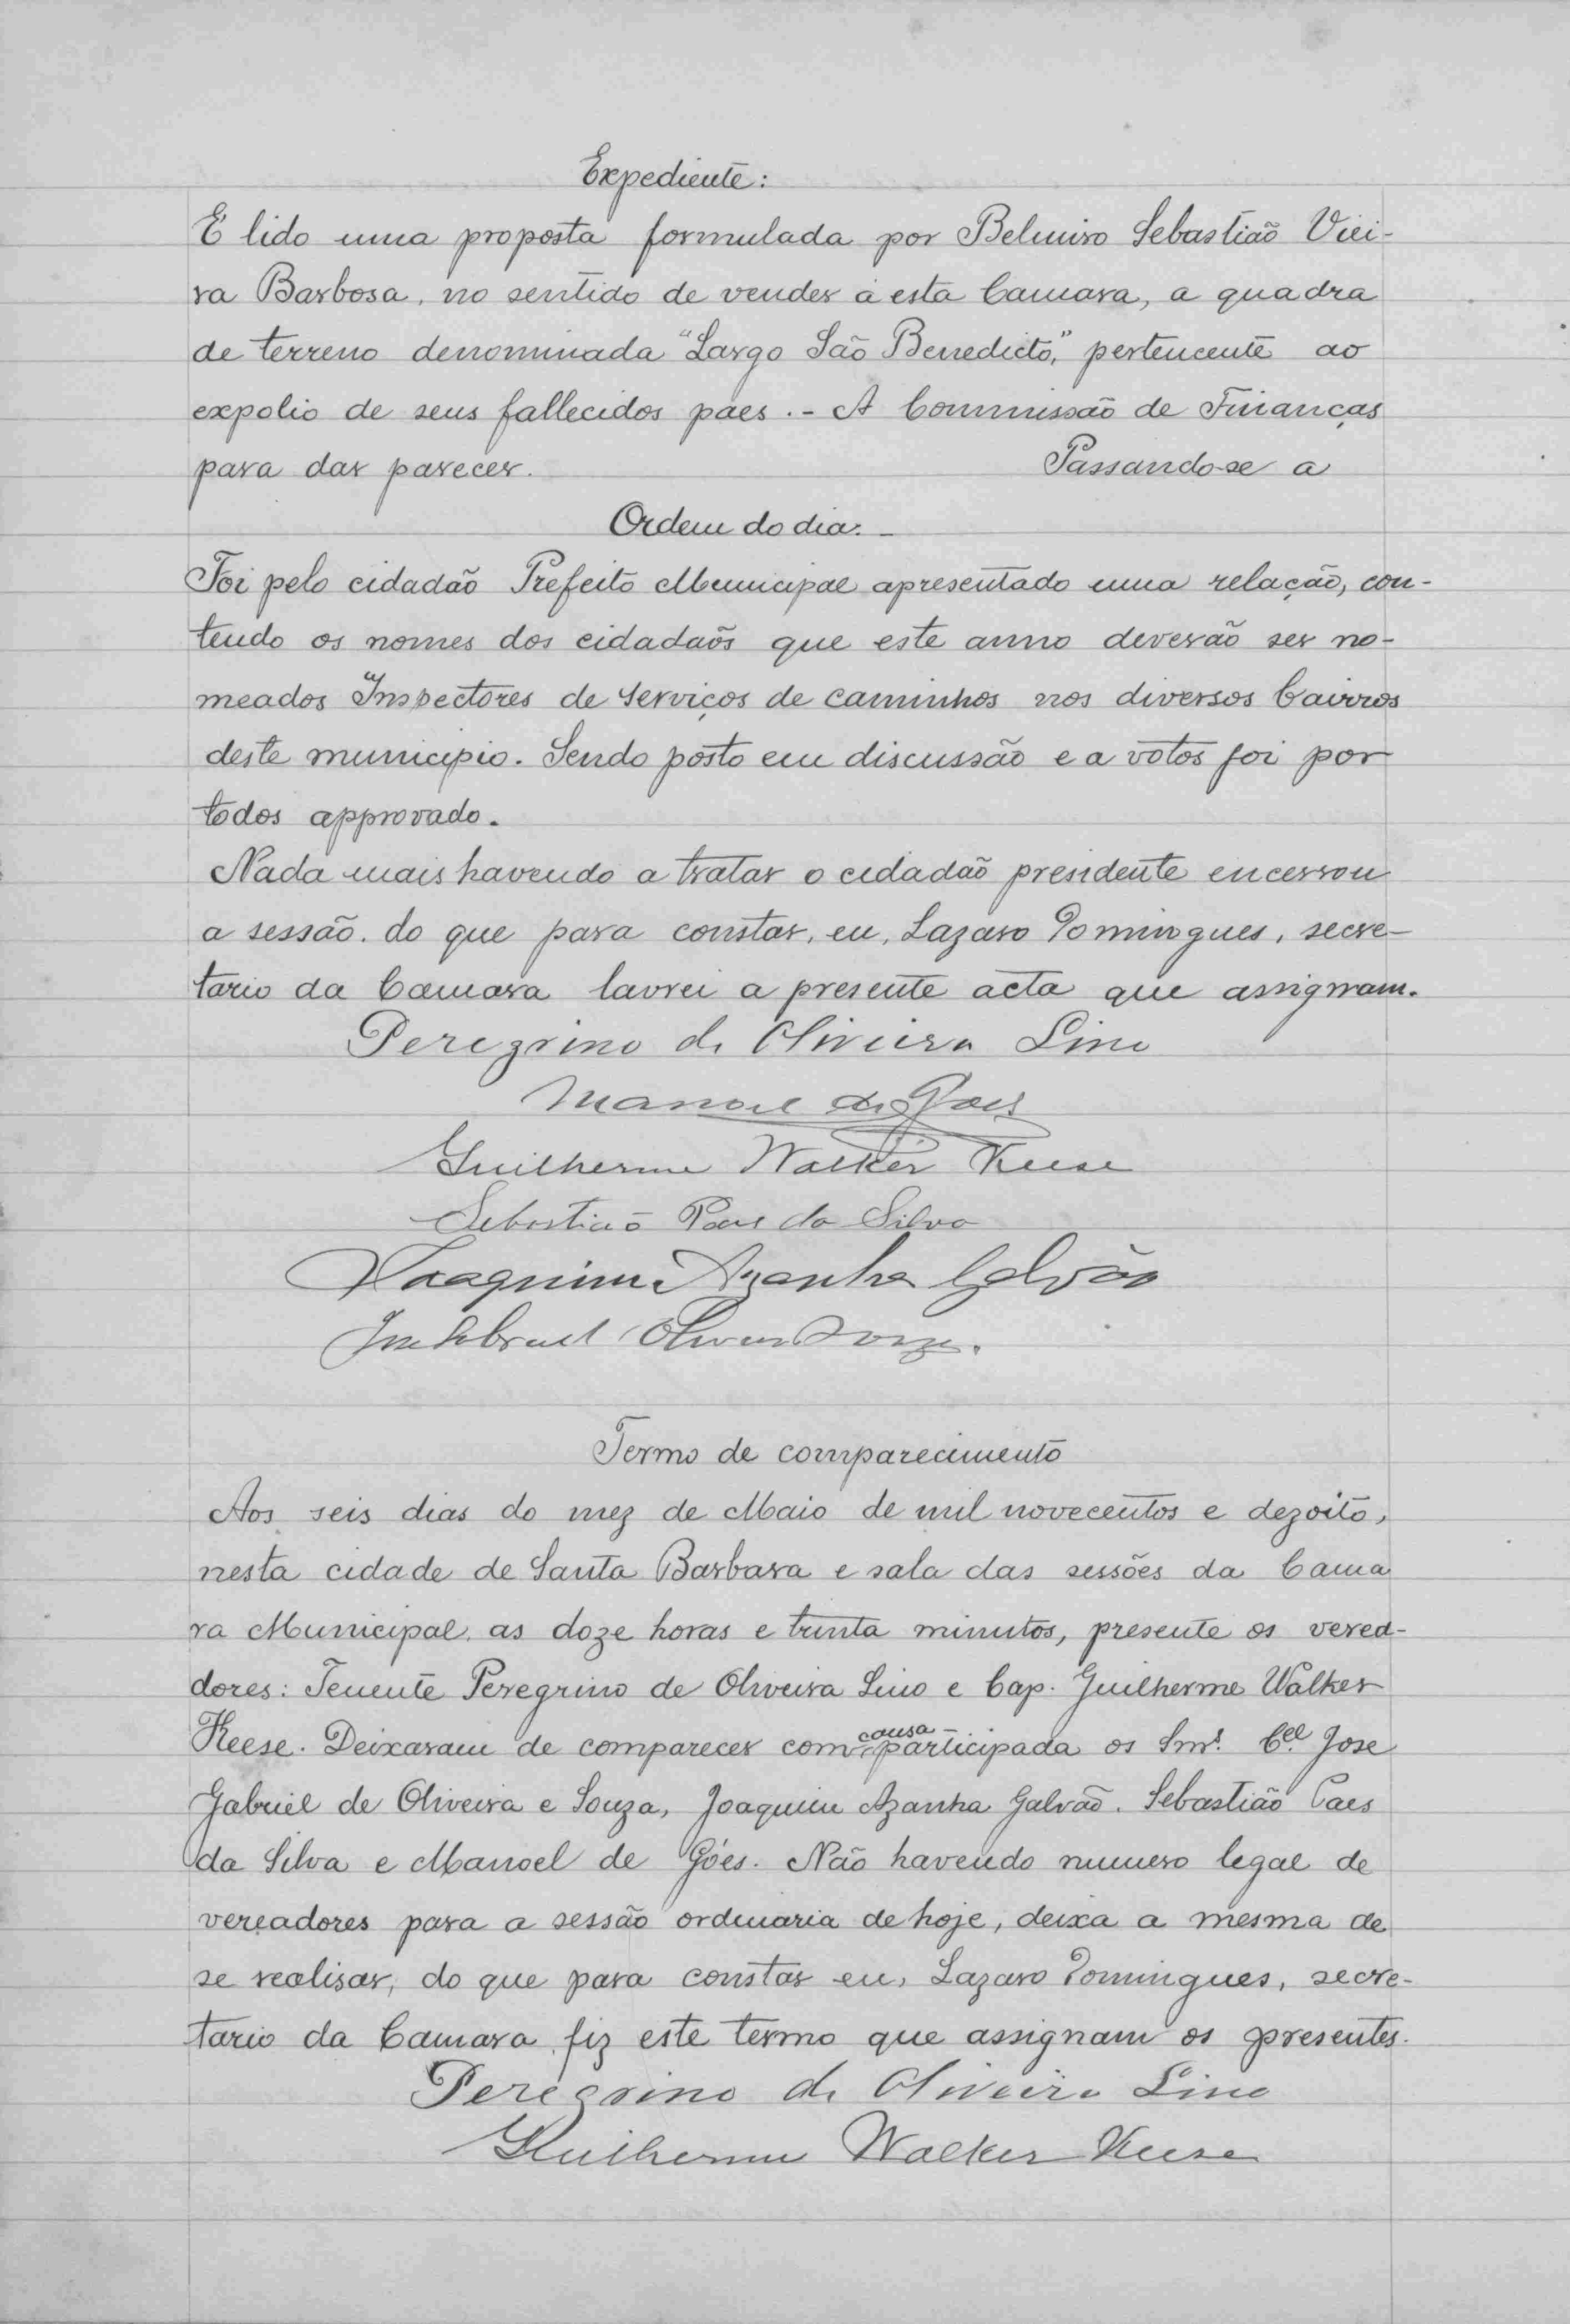 Expediente:
É lido uma proposta formulada por Belmiro Sebastião Viei-
ra Barbosa, no sentido de vender á esta Camara, a quadra
de terreno denominada "Largo São Benedicto," pertencente ao
expolio de seus fallecidos paes. - A Commissão de Finanças
para dar parecer. Passando-se a
Ordem do dia: -
Foi pelo cidadão Prefeito Municipal apresentado uma relação, con-
tendo os nomes dos cidadãos que este anno deverão ser no-
meados Inspectores de Serviços de caminhos nos diversos bairros
deste municipio. Sendo posto em discussão e a votos foi por
todos approvado.
Nada mais havendo a tratar o cidadão presidente encerrou
a sessão. do que para constar, eu, Lazaro Domingues, secre-
tario da Camara lavrei a presente acta que assignam.
Peregrino de Oliveira Lino
Manoel de Goes
Guilherme Walker Keese
Sebastião Paes da Silva
Joaquim Azanha Galvão
José Gabriel Oliveira Souza.
Termo de comparecimento
Aos seis dias do mez de Maio de mil novecentos e dezoito,
nesta cidade de Santa Barbara e sala das sessões da Cama
ra Municipal, as doze horas e trinta minutos, presente os veread-
dores: Tenente Peregrino de Oliveira Lino e Cap. Guilherme Walker
Keese. Deixaram de comparecer com causa participada os Snrs. Cel. Jose
Gabriel de Oliveira e Souza, Joaquim Azanha Galvão. Sebastião Paes
da Silva e Manoel de Góes. Não havendo numero legal de
vereadores para a sessão ordinaria de hoje, deixa a mesma de
se realisar, do que para constar eu, Lazaro Domingues, secre-
tario da Camara, fiz este termo que assignam os presentes.
Peregrino de Oliveira Lino
Guilherme Walker Keese